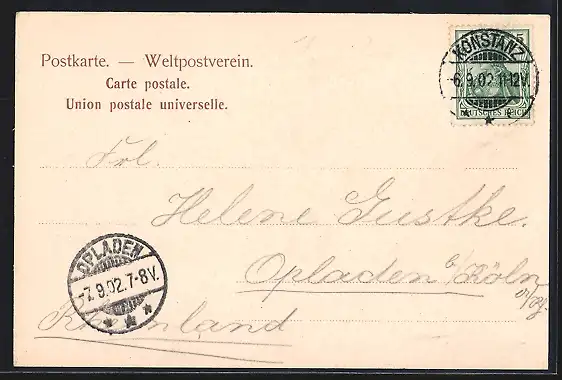 Postkarte. — Weltpostverein.
Carte postale.
Union postale universelle.
KONSTANZ
-6.9.02.11-12V.
DEUTSCHES REICH
Frl.
Helene Gustke.
Opladen b/Köln
OPLADEN
-7.9.02.7-8V.
Rheinland